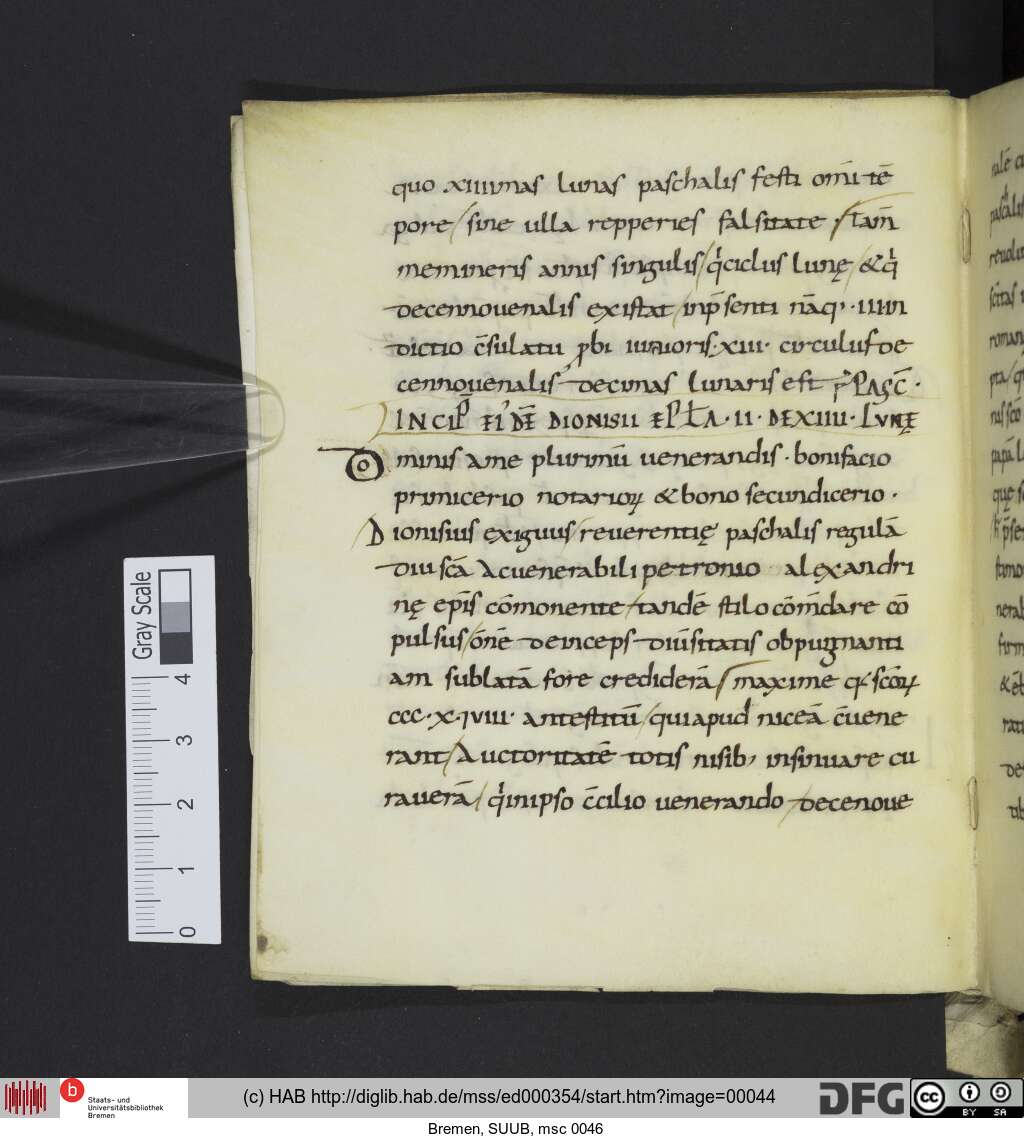 quo xiiiimas lunas paschalis festi om̄i tē
pore / sine ulla repperies falsitate; / tam̄
memineris annis singulis / q̇ ciclus lunę / & q̇
decennouenalis existat / inp̄senti nāq; · iiii in
dictio c̄sulatu ꝓbi iunioris · xiii · circulus de
cennouenalis / decimas lunaris est
INCIP̄ DIONISII EPŁA · II · DE XIIII · LVNĘ
Dominis ame plurimū uenerandis · bonifacio
primicerio notarioꝝ & bono secundicerio ·
Dionisius exiguus / reuerentię paschalis regulā
diu scā Acuenerabili petronio alexandri
nę ep̄is cōmonente / tandē stilo cōm̄dare cō
pulsus / ōnē deinceps diūsitatis obpugnanti
am sublatā fore crediderā / maxime q̇ scōꝝ
ccc · x · iviii · antestitū / qui apud niceā c̄uene
rant / Auctoritatē totis nisib; insinuare cu
rauerā / q̇ inipso c̄cilio uenerando / decenoue
Gray Scale
4
3
2
1
0
b
Staats- und
Universitätsbibliothek
Bremen
(c) HAB http://diglib.hab.de/mss/ed000354/start.htm?image=00044
DFG
cc
BY SA
Bremen, SUUB, msc 0046